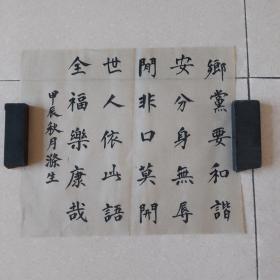 鄉黨要和諧
安分身無辱
閒非口莫開
世人依此語
全福樂康哉
甲辰秋月滌生